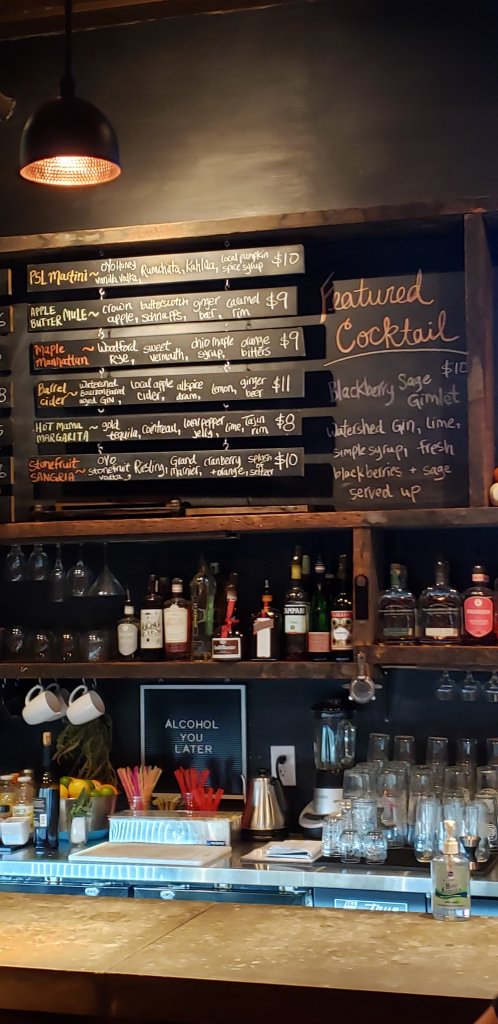 PSL Martini ~ OYO Honey vanilla vodka, Rumchata, Kahlúa, local pumpkin spice syrup $10
APPLE BUTTER MULE ~ crown apple, butterscotch schnapps, ginger beer, caramel rim $9
Maple Manhattan ~ Woodford Rye, sweet vermouth, ohio maple syrup, orange bitters $9
Barrel cider ~ Watershed Bourbon Barrel aged Gin, local apple cider, allspice dram, lemon, ginger beer $11
HOT MAMA MARGARITA ~ gold tequila, Cointreau, local pepper jelly, lime, Tajin rim $8
STONEFRUIT SANGRIA ~ OYO stonefruit vodka, Riesling, Grand marnier, cranberry + orange, splash of seltzer $10
Featured
Cocktail
$10
Blackberry Sage
Gimlet
Watershed Gin, Lime,
simple syrup, fresh
blackberries + sage
served up
CAMPARI
ALCOHOL
YOU
LATER
True